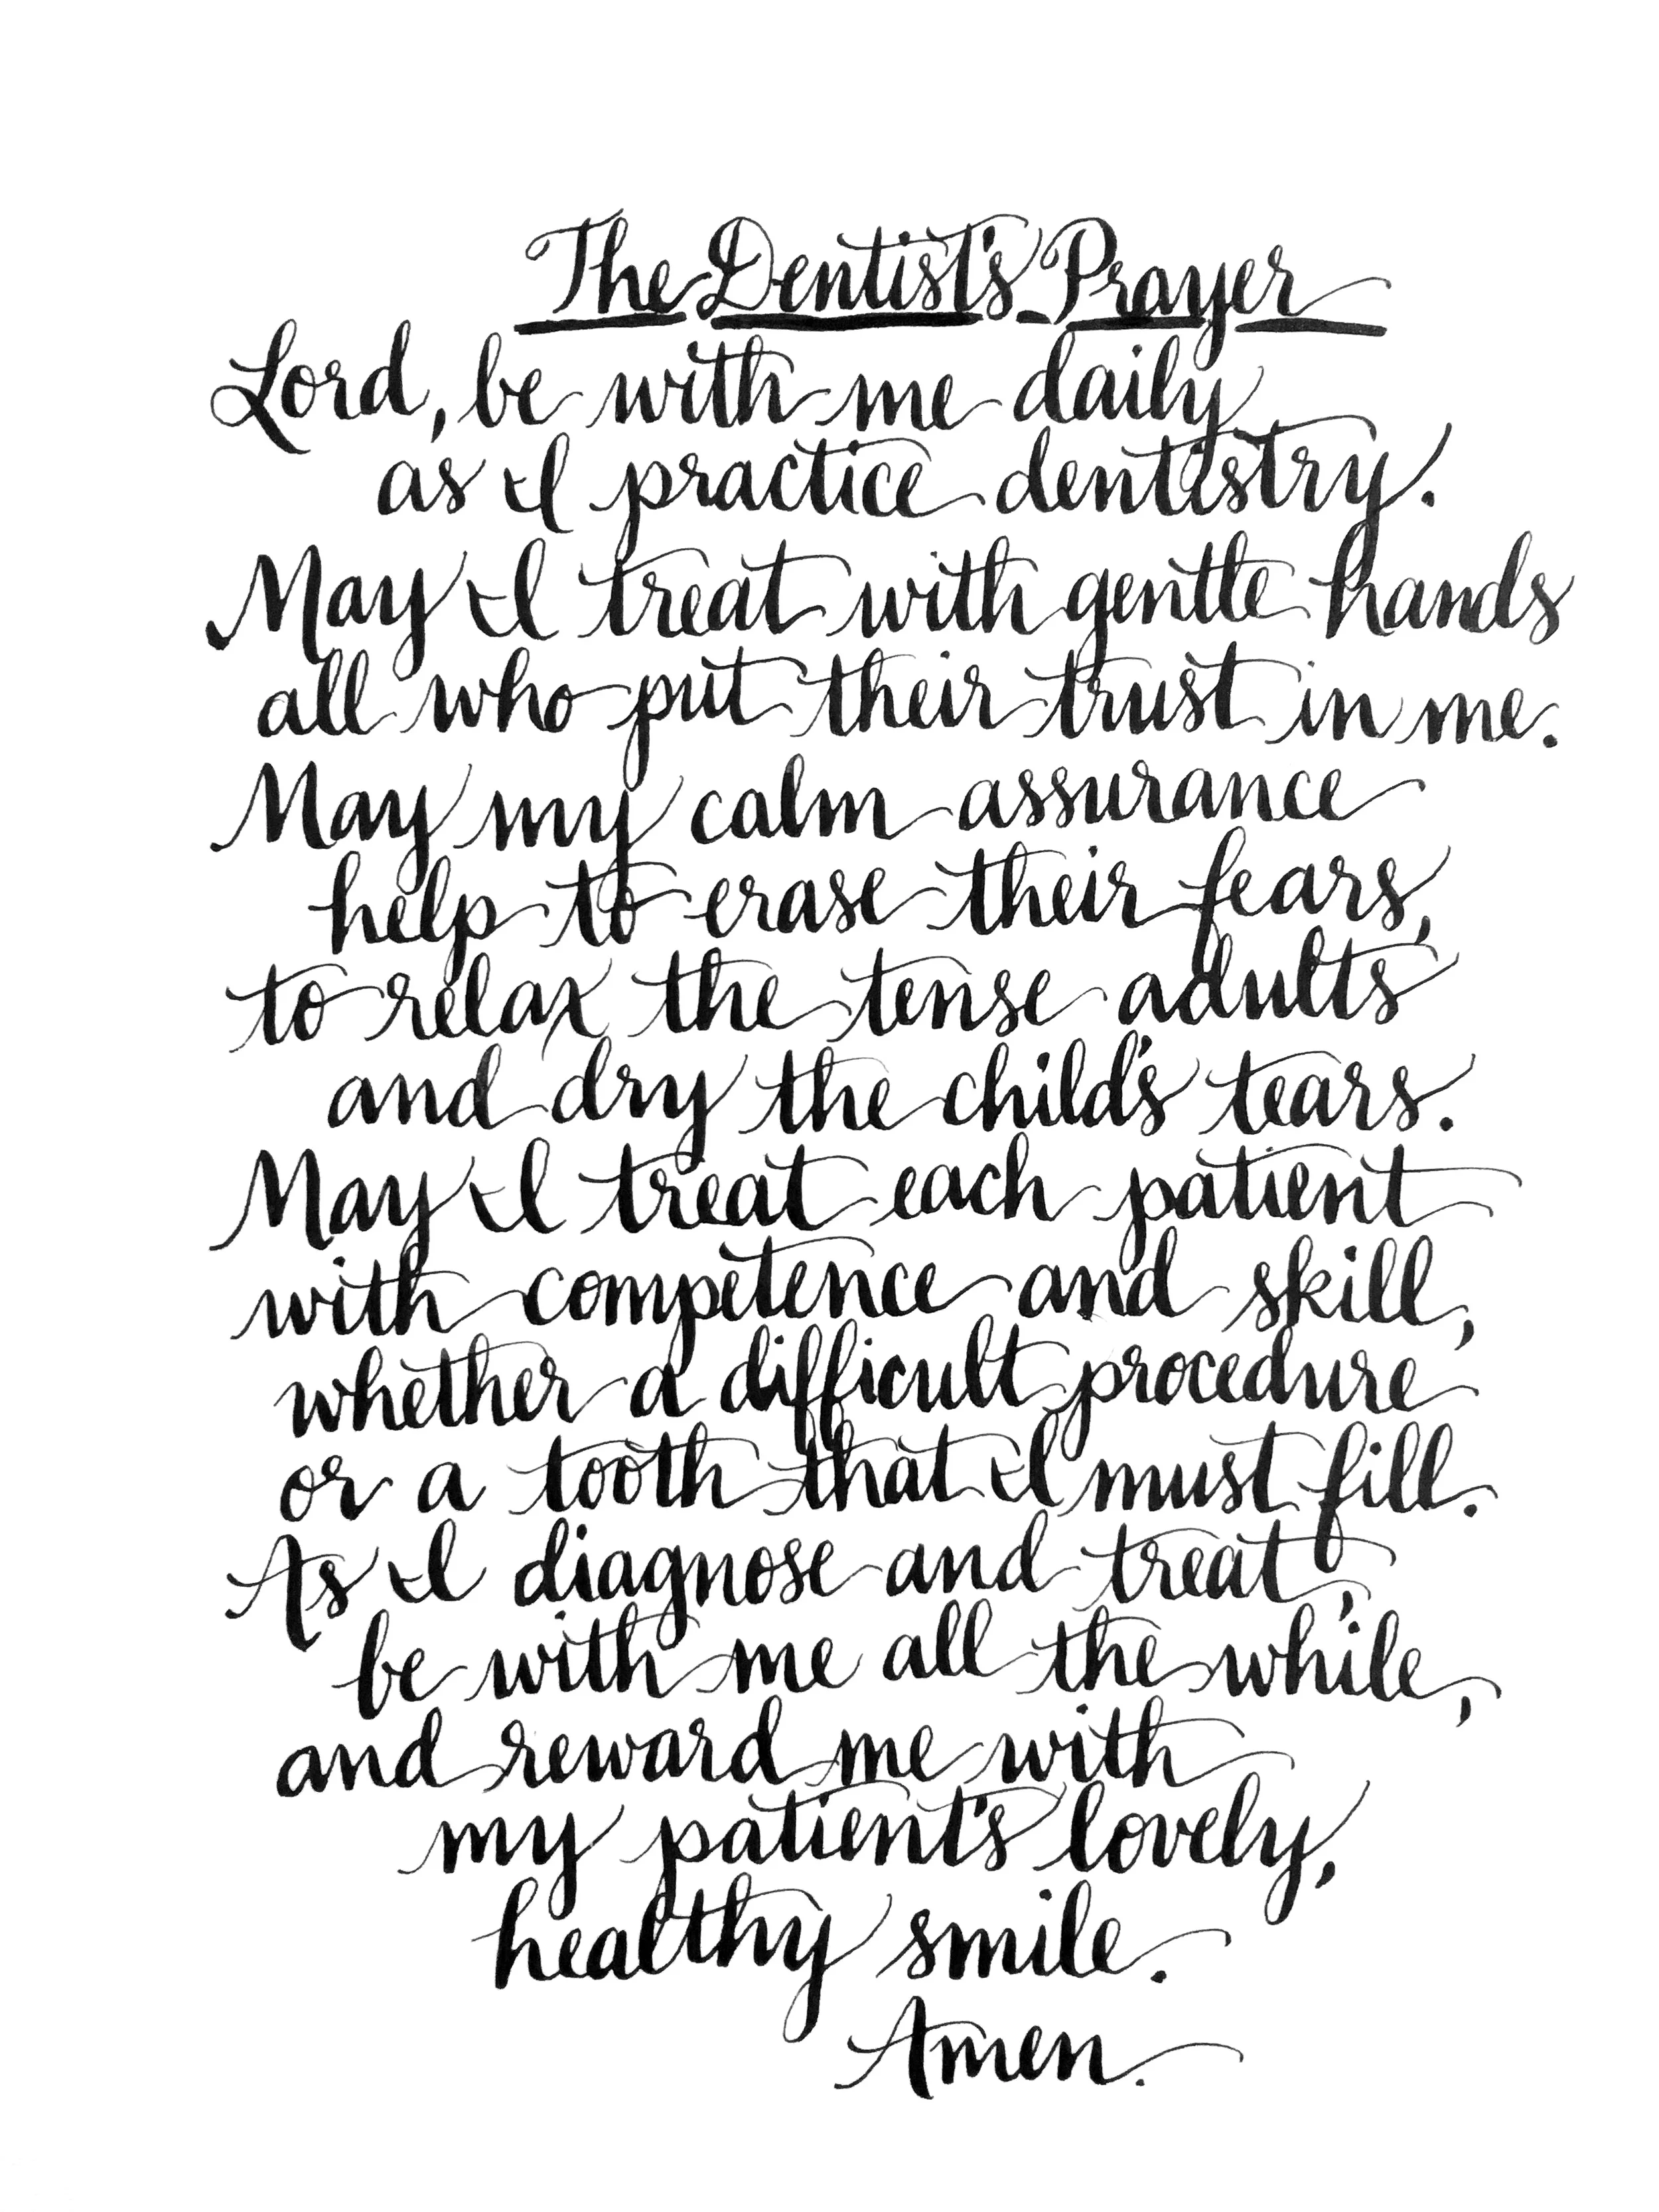 The Dentist's Prayer
Lord, be with me daily
as I practice dentistry.
May I treat with gentle hands
all who put their trust in me.
May my calm assurance
help to erase their fears,
to relax the tense adults
and dry the child's tears.
May I treat each patient
with competence and skill,
whether a difficult procedure
or a tooth that I must fill.
As I diagnose and treat,
be with me all the while,
and reward me with
my patient's lovely,
healthy smile.
Amen.